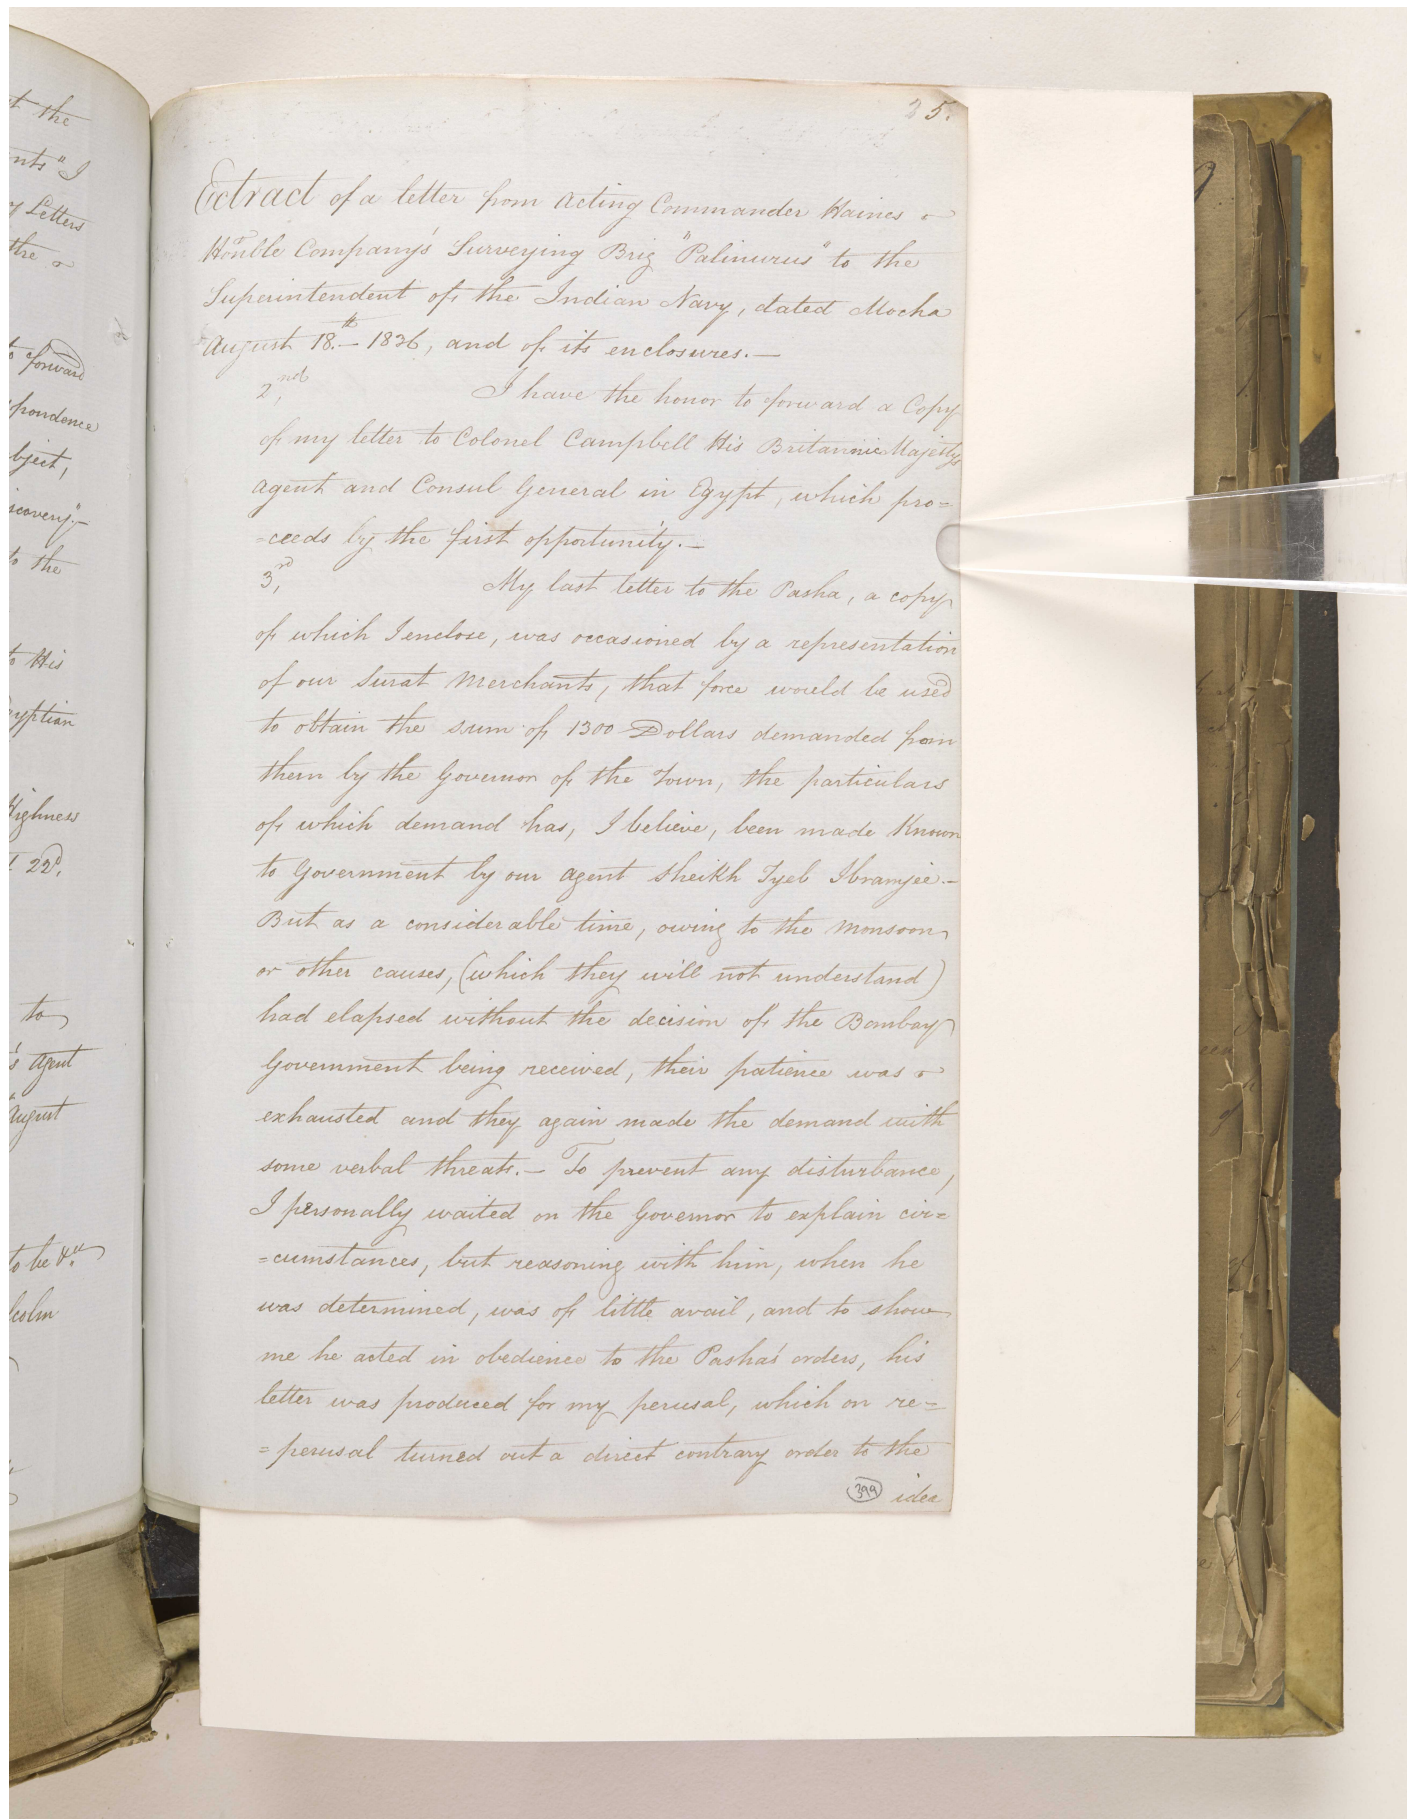 t the
nts" I
y Letters
the
to forward
pondence
bject,
iscovery".—
to the
to His
gyptian
Highness
22d.
to
's Agent
August
to be &ca
lcolm
25.
Extract of a letter from Acting Commander Haines
Honble Company's Surveying Brig "Palinurus" to the
Superintendent of the Indian Navy, dated Mocha
August 18th.— 1836, and of its enclosures.—
2nd, I have the honor to forward a Copy
of my letter to Colonel Campbell His Britannic Majesty's
Agent and Consul General in Egypt, which pro=
=ceeds by the first opportunity.—
3rd, My last letter to the Pasha, a copy
of which I enclose, was occasioned by a representation
of our Surat Merchants, that force would be used
to obtain the sum of 1300 Dollars demanded from
them by the Governor of the Town, the particulars
of which demand has, I believe, been made Known
to Government by our Agent Sheikh Tyeb Ibramjee.—
But as a considerable time, owing to the Monsoon
or other causes, (which they will not understand)
had elapsed without the decision of the Bombay
Government being received, their patience was
exhausted and they again made the demand with
some verbal threats.— To prevent any disturbance,
I personally waited on the Governor to explain cir=
=cumstances, but reasoning with him, when he
was determined, was of little avail, and to show
me he acted in obedience to the Pasha's orders, his
letter was produced for my perusal, which on re=
=perusal turned out a direct contrary order to the
399 idea